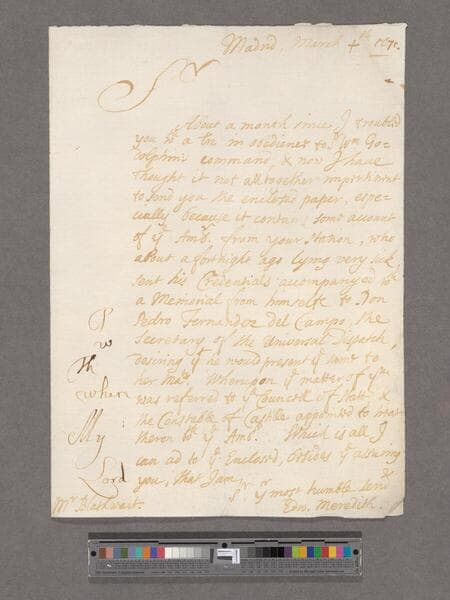 Madrid, March 4th 1671.
Sr
About a month since I troubled
you wth a lre in obedience to Sr Wm Go-
dolphin's command, & now I have
thought it not alltogether impertinent
to send you the enclosed paper, espe-
cially because it contains some account
of ye Ambr. from your Station, who
about a fortnight ago lying very sick
sent his Credentials accompanyed wth
a Memorial from himselfe to Don
Pedro Fernandez del Campo, the
Secretary of the Universal Dispatch,
desiring yt he would present ye same to
her Maty. Whereupon ye matter of
was referred to ye Councell of State &
the Constable of Castile appointed to treat
theron wth ye Ambr. Which is all I
can ad to ye Enclosed, besides ye assuring
you, that I am
Sr yr most humble servt
Edw. Meredith.
Mr Blathwait.
P
w
Th
when
My
Lord